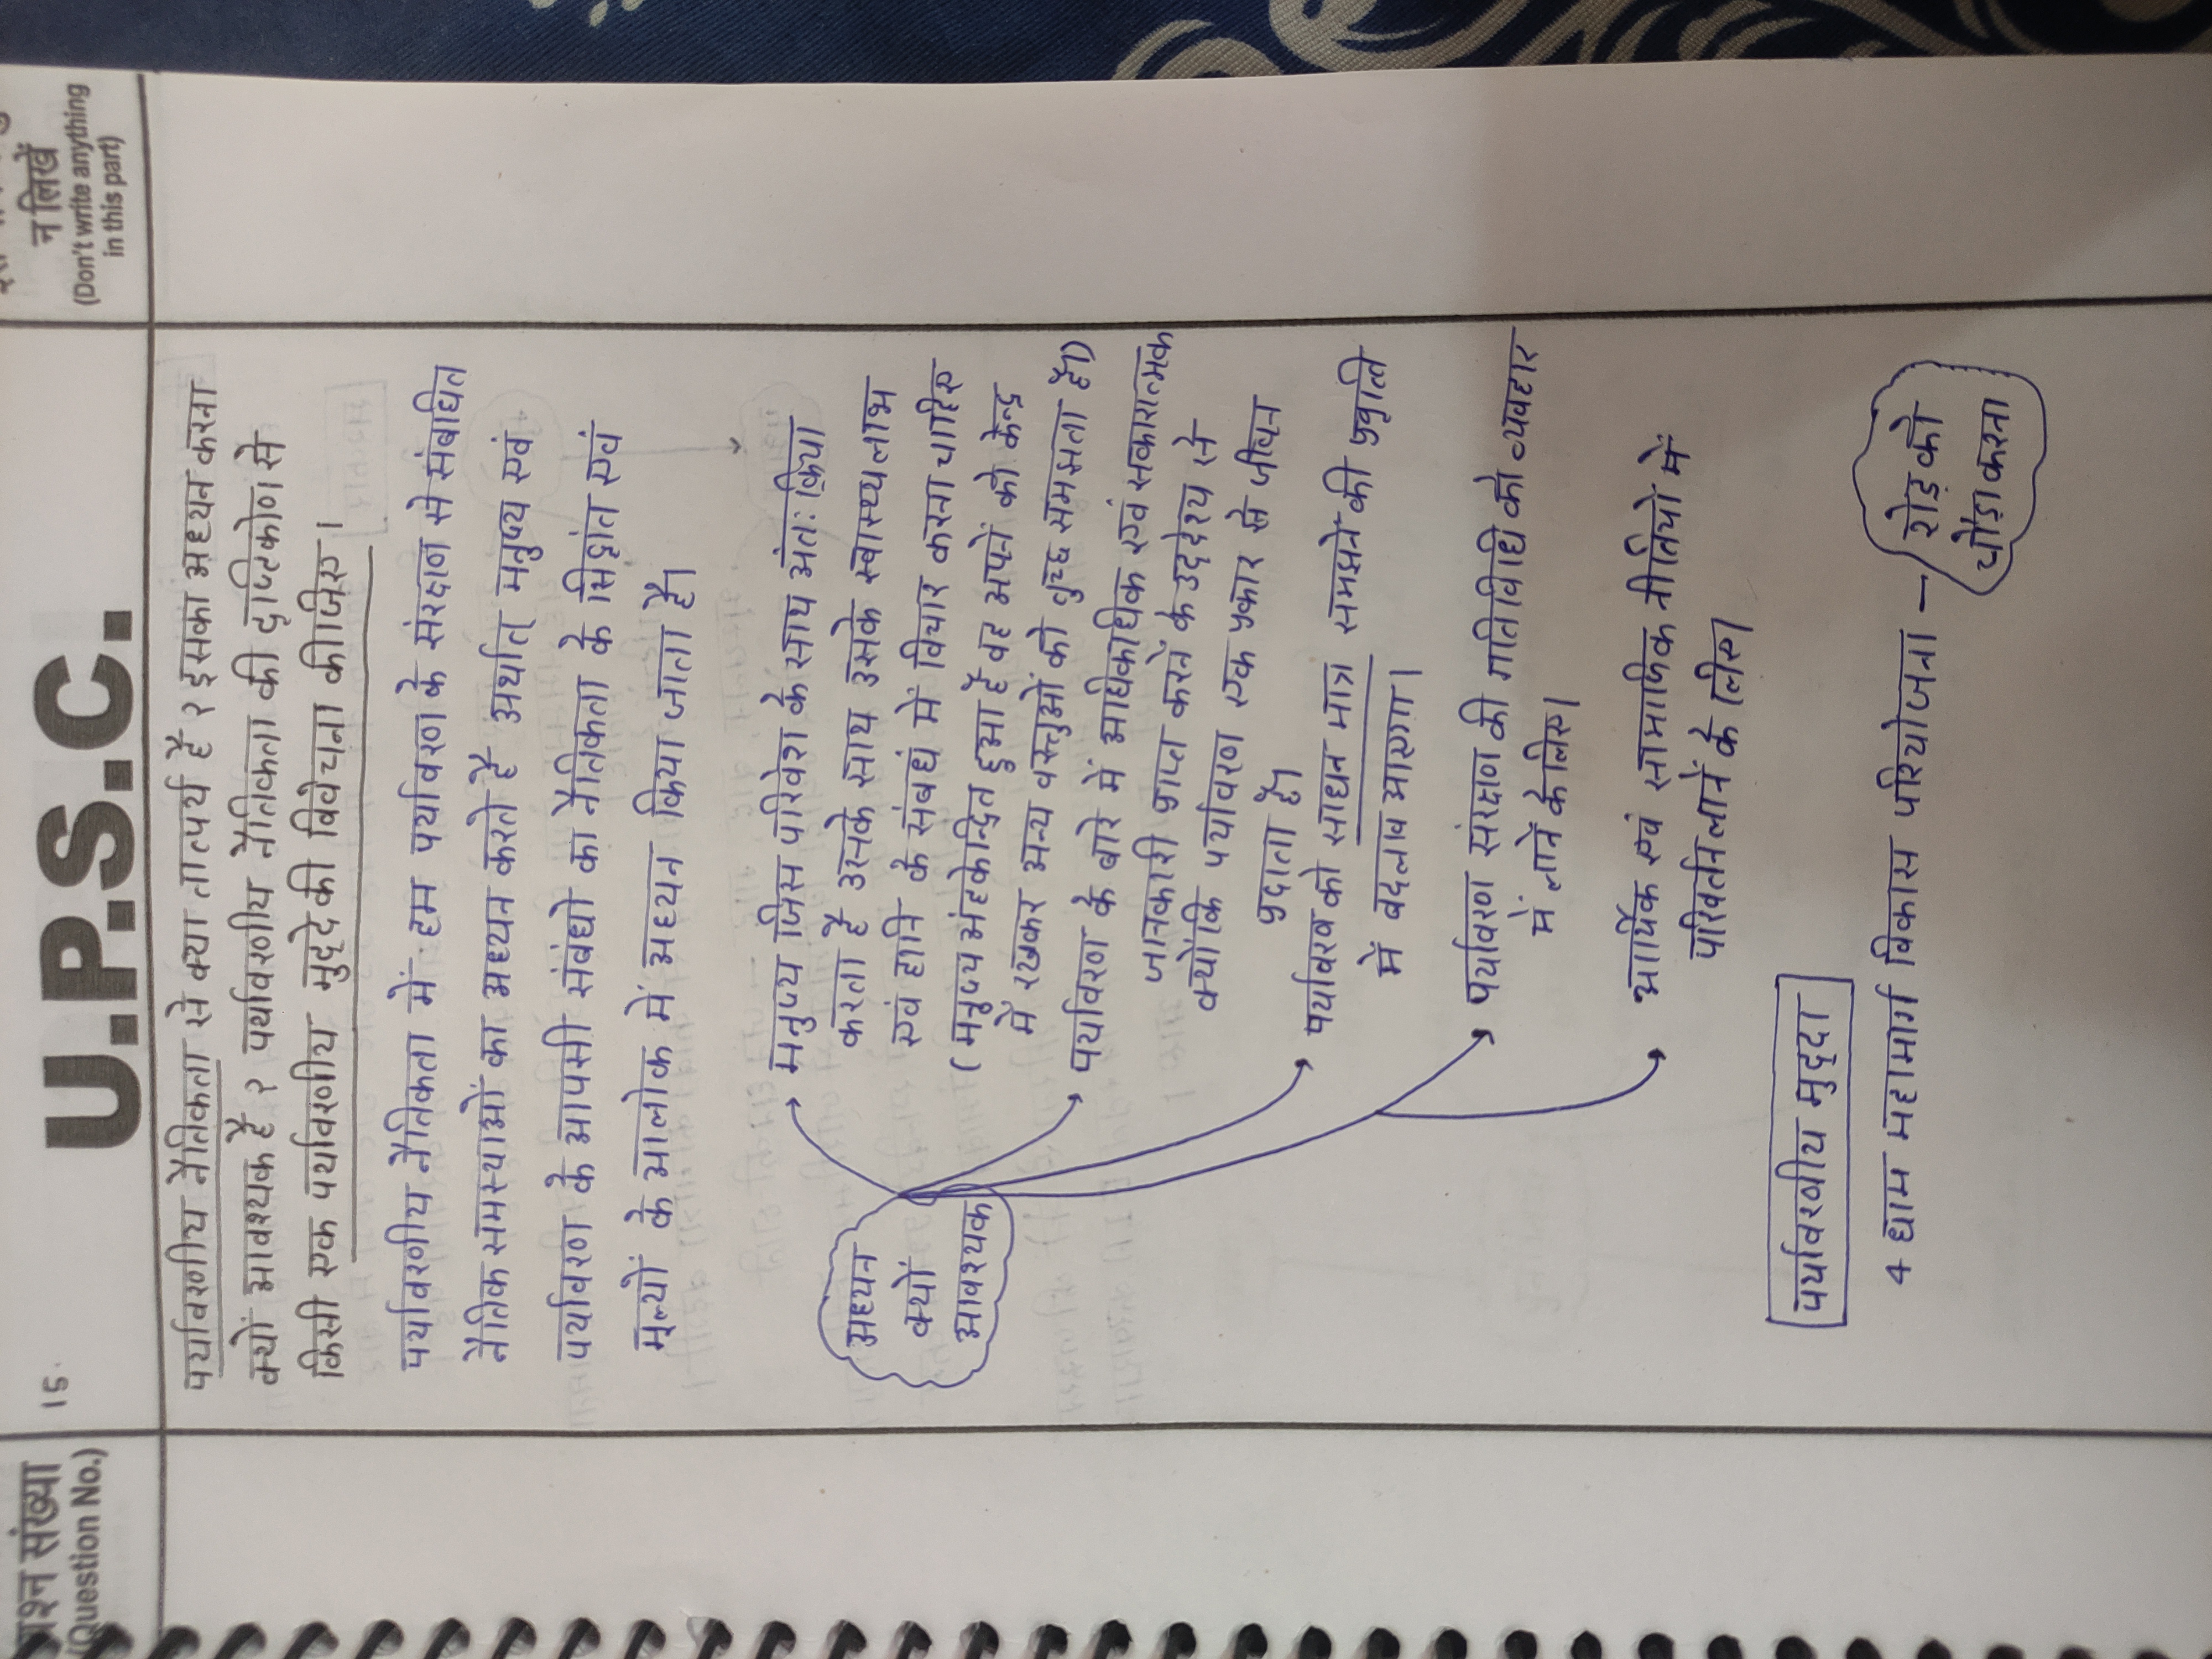 प्रश्न संख्या
(Question No.)
15.
U.P.S.C.
न लिखें
(Don't write anything
in this part)
पर्यावरणीय नैतिकता से क्या तात्पर्य है ? इसका अध्यन करना
क्यों आवश्यक है ? पर्यावरणीय नैतिकता की दृष्टिकोण से
किसी एक पर्यावरणीय मुद्दे की विवेचना कीजिए।
पर्यावरणीय नैतिकता में हम पर्यावरण के संरक्षण से संबंधित
नैतिक समस्याओं का अध्यन करते है अर्थात् मनुष्य एवं
पर्यावरण के आपसी संबंधो का नैतिकता के सिद्वांत एवं
मूल्यों के आलोक में अध्यन किया जाता है।
अध्यन
क्यों
आवश्यक
मनुष्य जिस परिवेश के साथ अंतः क्रिया
करता है उसके साथ उसके स्वास्थ्य लाभ
एवं हानि के संबधं में विचार करना चाहिए
(मनुष्य अंहकेन्द्रित हुआ है वह अपने को केन्द्र
में रखकर अन्य वस्तुओं को तुच्छ समझता है।)
पर्यावरण के बारे में अधिकाधिक एवं सकारात्मक
जानकारी प्राप्त करने के उद्देश्य से
क्योंकि पर्यावरण एक प्रकार से जीवन
प्रदाता है।
पर्यावरव को साधन मात्र समझने की प्रवृति
में बदलाव आएगा।
पर्यावरण संरक्षण की गतिविधि को व्यवहार
में लाने के लिए।
आर्थिक एवं सामाजिक नीतियों में
परिवर्तन लाने के लिए।
पर्यावरणीय मुद्दा
4 धाम महामार्ग विकास परियोजना –
रोड़ को
चौड़ा करना